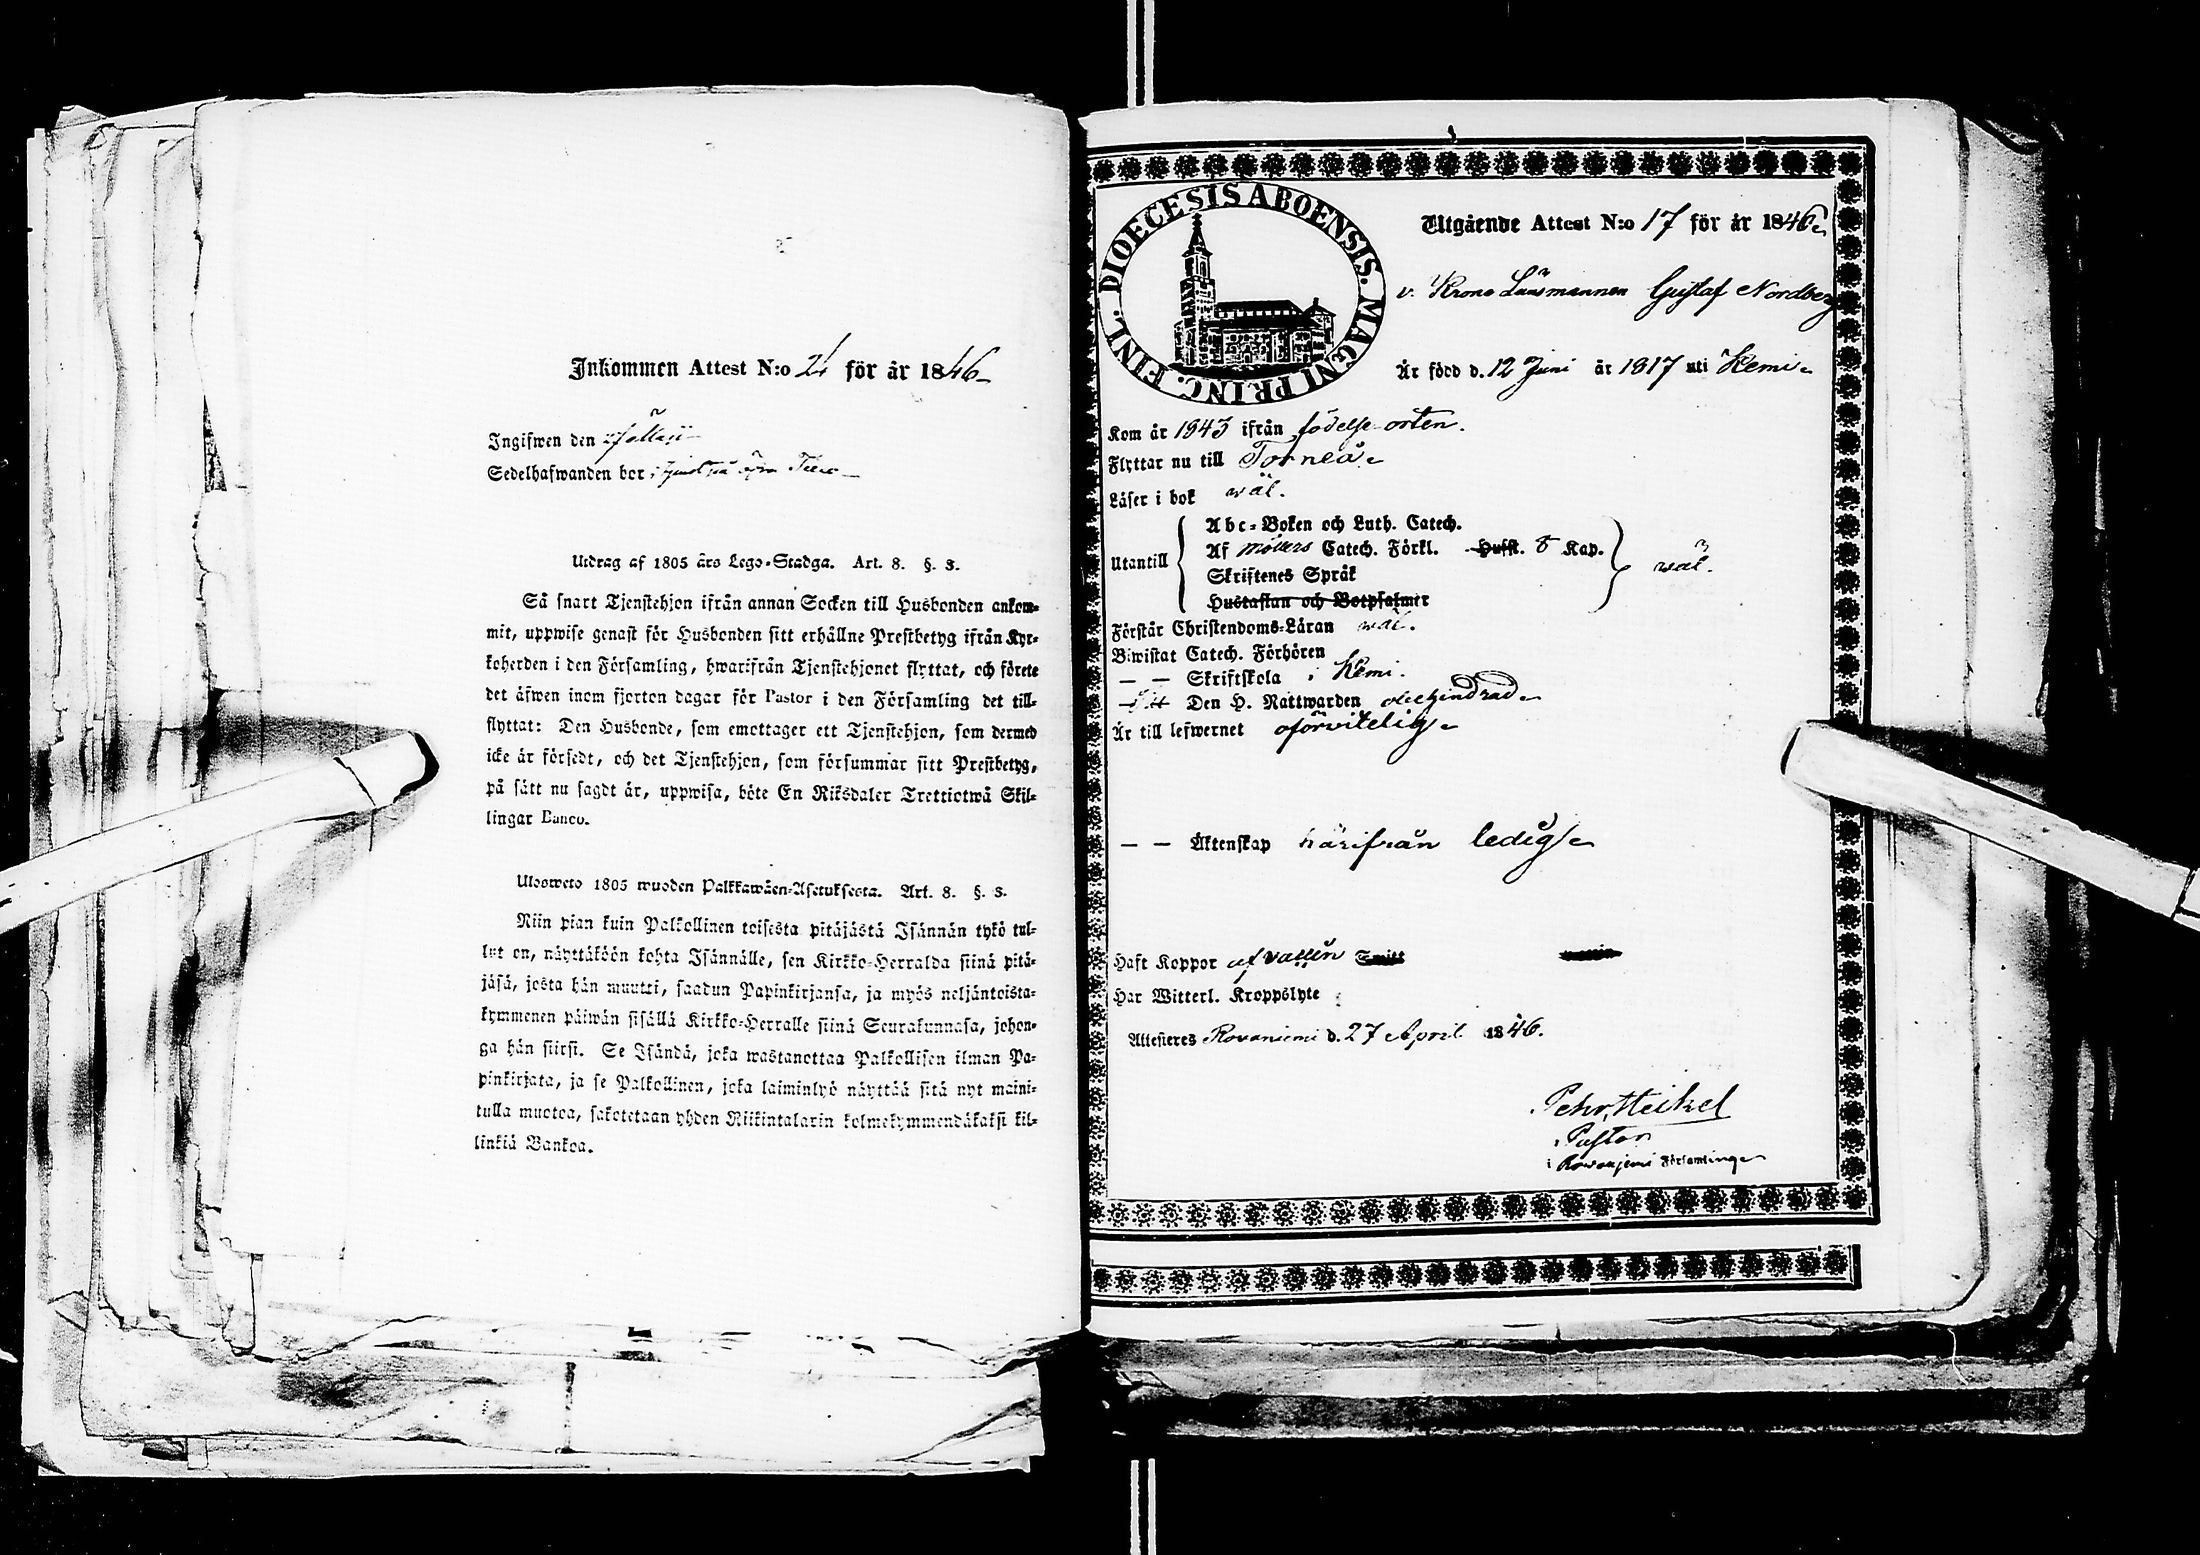 Inkommen Attest N:o 21 för år 1846
Ingifwen den
Sedelhafwanden bor i
Utdrag af 1805 års Lego-Stadga. Art. 8. §. 3.
Så snart Tjenstehjon ifrån annan Socken till Husbonden ankom-
mit, uppwise genast för Husbonden sitt erhållne Prestbetyg ifrån Kyr-
koherden i den Församling, hwarifrån Tjenstehjonet flyttat, och förete
det äfwen inom fjorton dagar för Pastor i den Församling det till-
flyttat: Den Husbonde, som emottager ett Tjenstehjon, som dermed
icke är försedt, och det Tjenstehjon, som försummar sitt Prestbetyg,
på sätt nu sagdt är, uppwisa, böte En Riksdaler Trettiotwå Skil-
lingar Banco.
Ulosweto 1805 wuoden Palkkawäen-Asetuksesta. Art. 8. §. 3.
Niin pian kuin Palkollinen toisesta pitäjästä Isännän tykö tul-
lut on, näyttäköön kohta Isännälle, sen Kirkko-Herralda siinä pitä-
jäsä, josta hän muutti, saadun Papinkirjansa, ja myös neljäntoista-
kymmenen päiwän sisällä Kirkko-Herralle siinä Seurakunnasa, johon-
ga hän siirsi. Se Isändä, joka wastanottaa Palkollisen ilman Pa-
pinkirjata, ja se Palkollinen, joka laiminlyö näyttää sitä nyt maini-
tulla muotoa, sakotetaan yhden Riikintalarin kolmekymmendäkaksi kil-
linkiä Bankoa.
DIOECESIS ABOENSIS. MAGNI PRINC. FINL.
Utgående Attest N:o 17 för år 1846
v. Krono Länsmannen Gustaf Nordberg
Är född d. 12 Juni år 1817 uti Kemi
Kom år 1843 ifrån födelse-orten.
Flyttar nu till Torneå
Läser i bok wäl.
Utantill
Abc-Boken och Luth. Catech.
Af Möllers Catech. Förkl. Hufst. 8 Kap.
Skriftenes Språk
Hustaflan och Botpsalmer
wäl.
Förstår Christendoms-Läran wäl.
Biwistat Catech. Förhören
— — Skriftskola i Kemi.
Den H. Nattwarden obehindrad
Är till lefwernet oförvitelig
— — Äktenskap härifrån ledig
Haft Koppor af vaccin
Har Witterl. Kroppslyte
Attesteres Rovaniemi d. 27 April 1846.
Pehr Heikel
Pastor
i Rovanjemi Församling